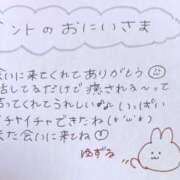 ントのおにいさま
会いに来てくれてありがとう
話してるだけで癒される〜って
言ってくれてうれしい いっぱい
イチャイチャできたね(*´ω`*)
また会いに来てね♡
ゆずな